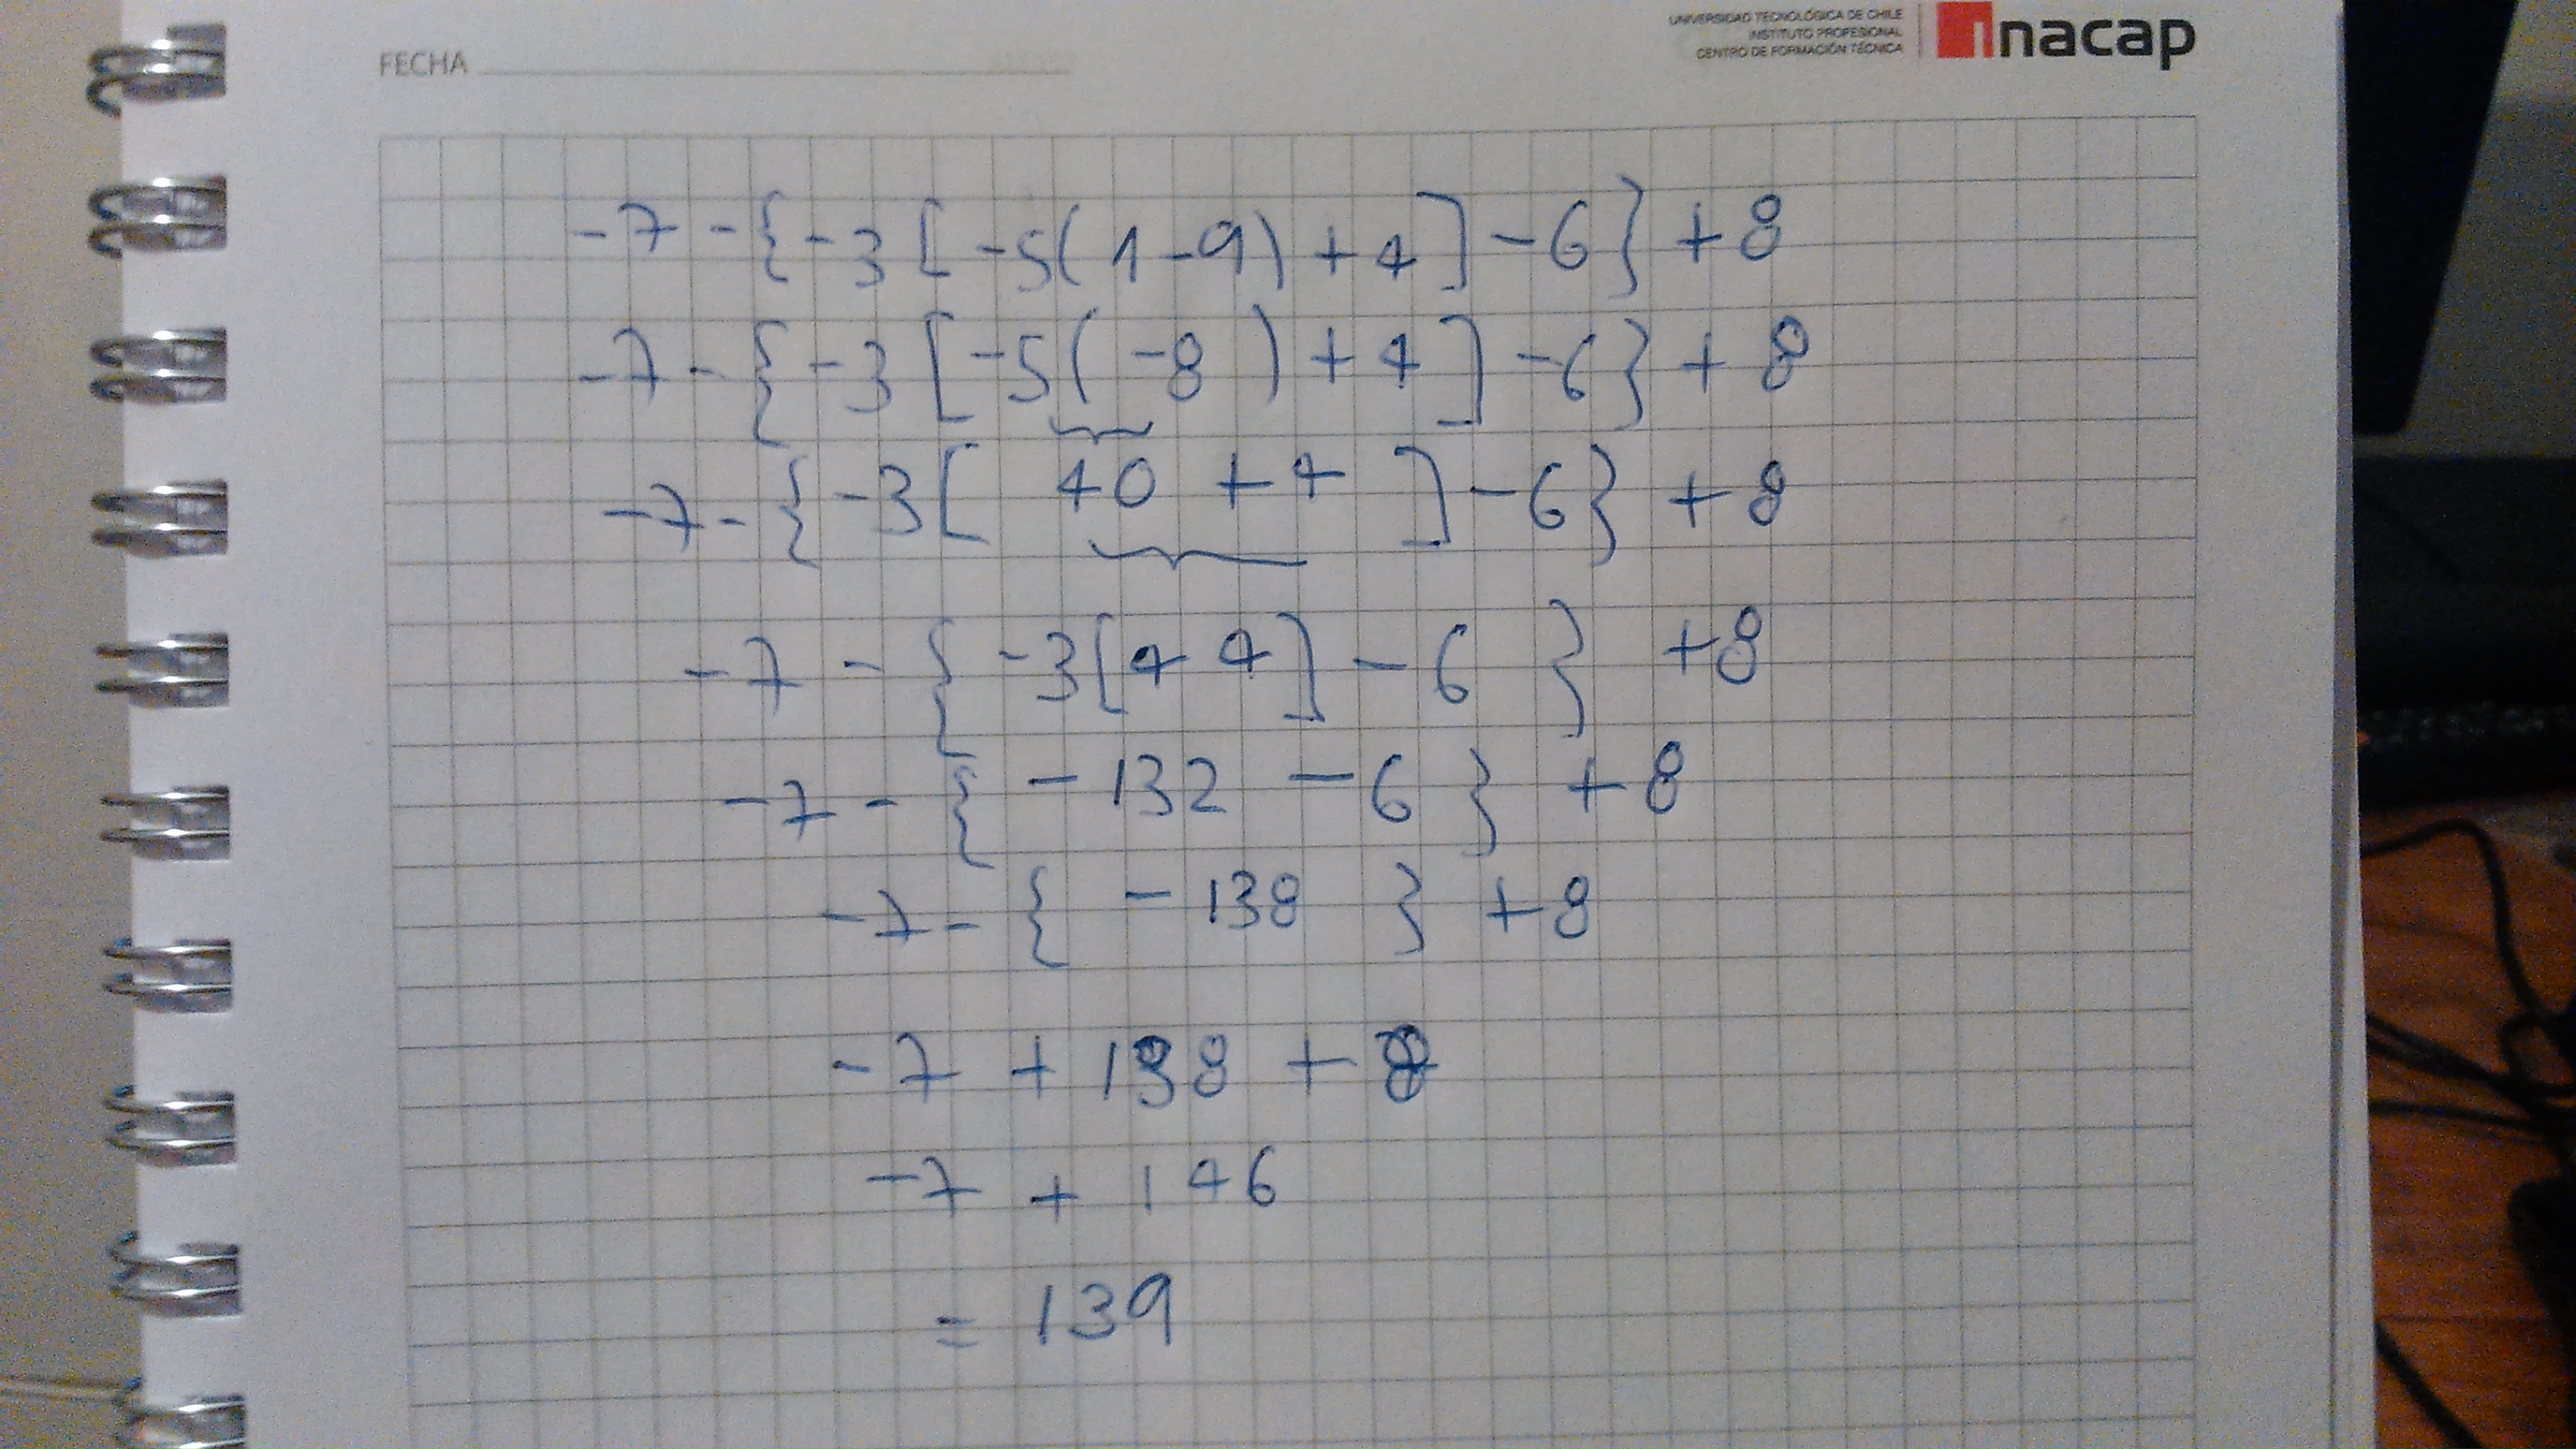 FECHA
UNIVERSIDAD TECNOLÓGICA DE CHILE
INSTITUTO PROFESIONAL
CENTRO DE FORMACIÓN TÉCNICA
inacap
-7 - { -3 [ -5 ( 1 - 9 ) + 4 ] - 6 } + 8
-7 - { -3 [ -5 ( -8 ) + 4 ] - 6 } + 8
-7 - { -3 [ 40 + 4 ] - 6 } + 8
-7 - { -3 [ 44 ] - 6 } + 8
-7 - { - 132 - 6 } + 8
-7 - { - 138 } + 8
-7 + 138 + 8
-7 + 146
= 139